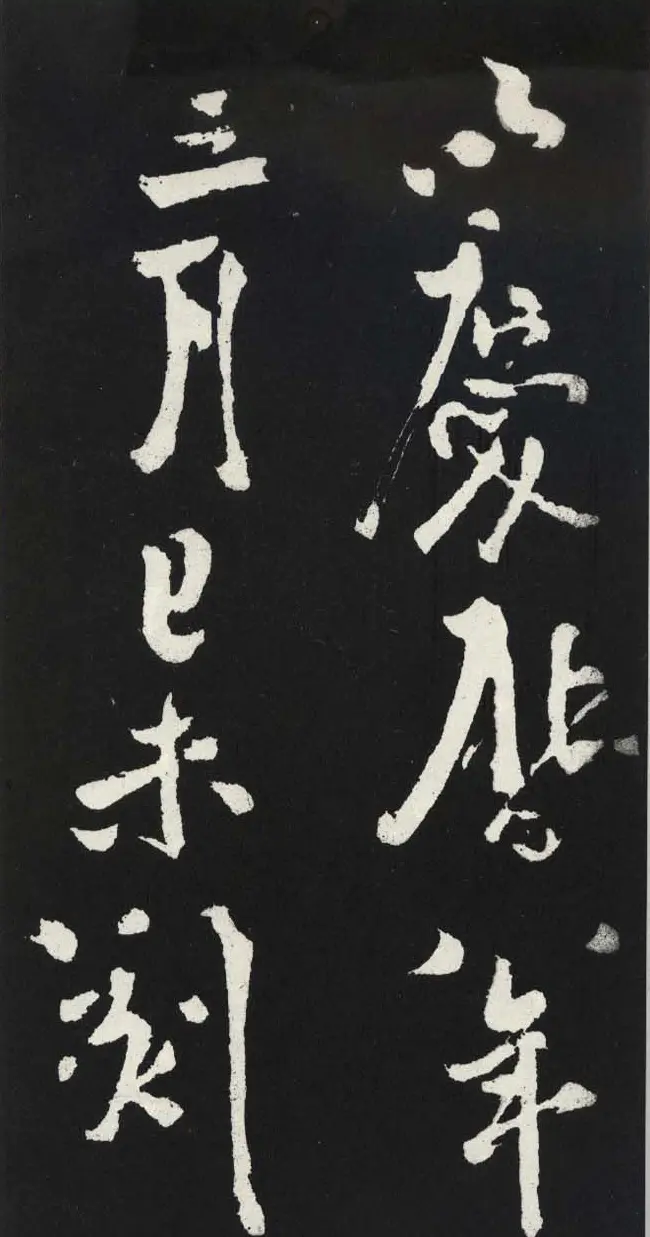 以慶曆八年
三月己未刻